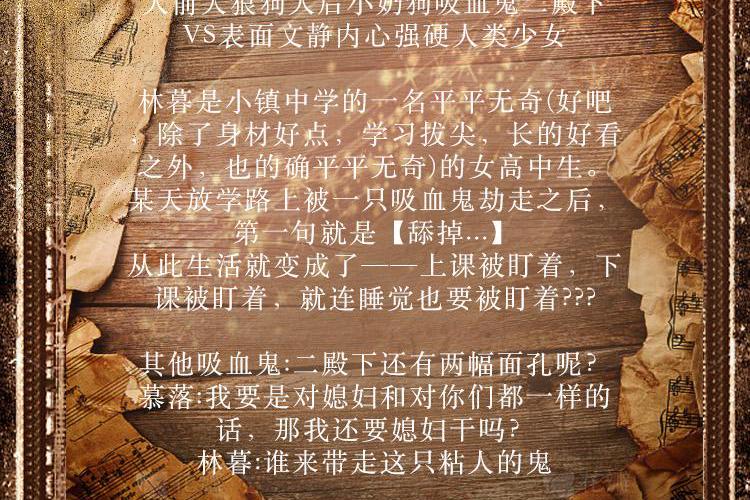 人前大狼狗人后小奶狗吸血鬼二殿下
VS表面文静内心强硬人类少女
林暮是小镇中学的一名平平无奇(好吧
，除了身材好点，学习拔尖，长的好看
之外，也的确平平无奇)的女高中生。
某天放学路上被一只吸血鬼劫走之后，
第一句就是【舔掉...】
从此生活就变成了——上课被盯着，下
课被盯着，就连睡觉也要被盯着???
其他吸血鬼:二殿下还有两幅面孔呢？
慕落:我要是对媳妇和对你们都一样的
话，那我还要媳妇干吗？
林暮:谁来带走这只粘人的鬼